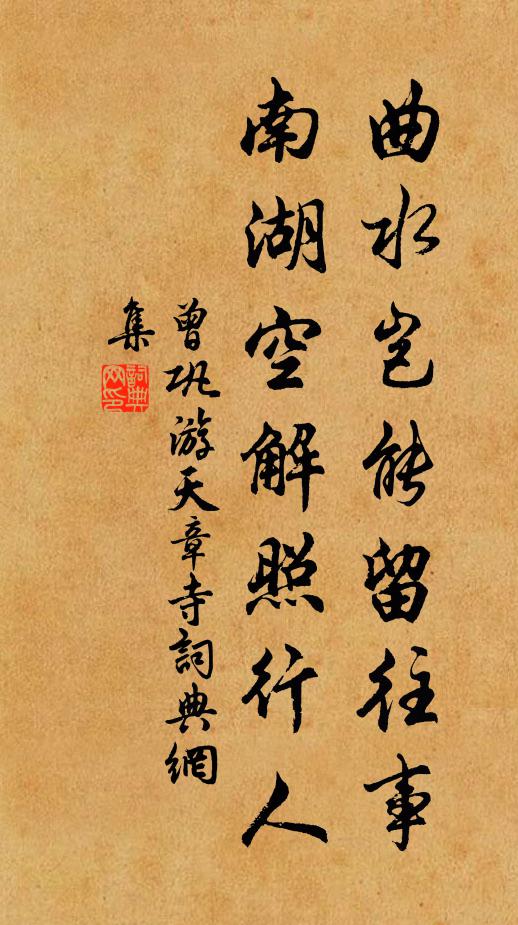 曲水岂能留往事
南湖空解照行人
曾巩游天章寺詞典網
集
詞典
网印